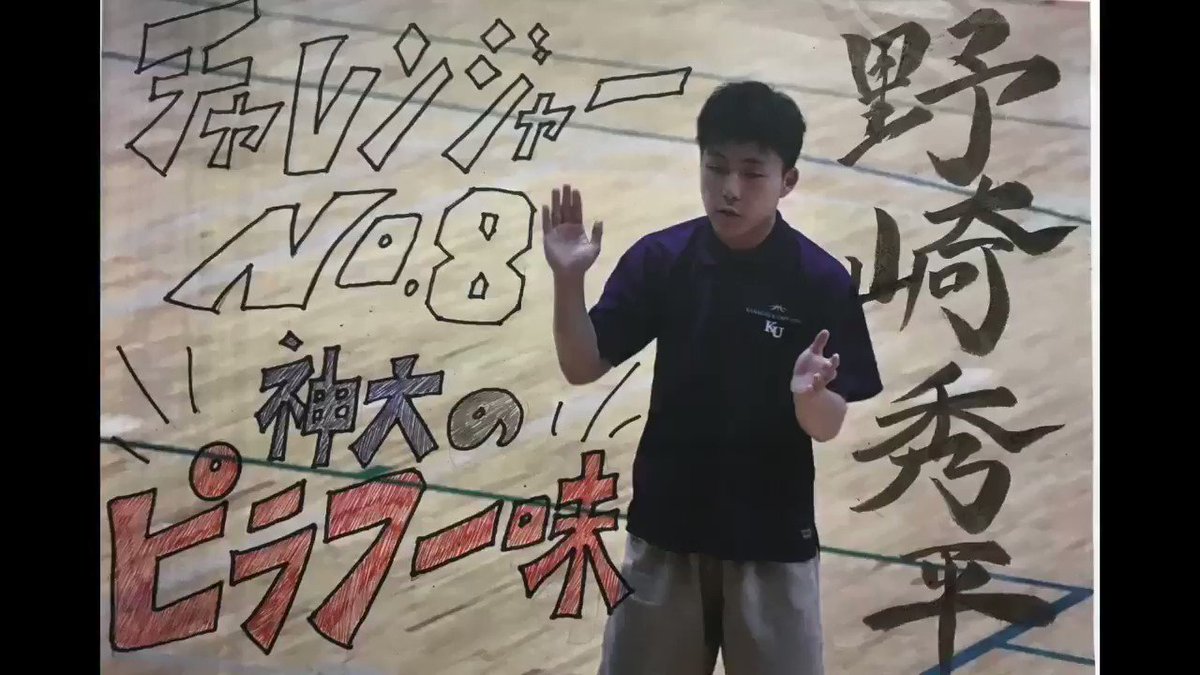 チャレンジャー
No.8
神大の
ピラフ一味
野崎秀平
KU